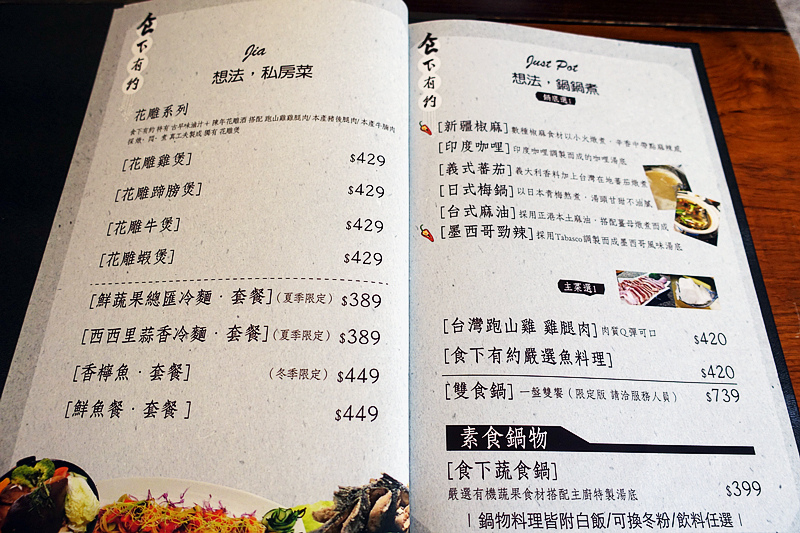 食下有約
Jia
想法，私房菜
花雕系列
食下有約 特有 古早味滷汁＋陳年花雕酒 搭配 跑山雞雞腿肉/本產豬後腿肉/本產牛腩肉
採 燉、悶、煮 真工夫製成 獨有 花雕煲
[花雕雞煲] $429
[花雕蹄膀煲] $429
[花雕牛煲] $429
[花雕蝦煲] $429
[鮮蔬果總匯冷麵．套餐](夏季限定) $389
[西西里蒜香冷麵．套餐](夏季限定) $389
[香檸魚．套餐] (冬季限定) $449
[鮮魚餐．套餐] $449
食下有約
Just Pot
想法，鍋鍋煮
鍋底選1
[新疆椒麻] 數種椒麻食材以小火燉煮，辛香中帶點麻辣感
[印度咖哩] 印度咖哩調製而成的咖哩湯底
[義式蕃茄] 義大利香料加上台灣在地蕃茄燉煮
[日式梅鍋] 以日本青梅熬煮，湯頭甘甜不油膩
[台式麻油] 採用正港本土麻油，搭配薑母燉煮而成
[墨西哥勁辣] 採用Tabasco調製而成墨西哥風味湯底
主菜選1
[台灣跑山雞 雞腿肉] 肉質Q彈可口 $420
[食下有約嚴選魚料理] $420
[雙食鍋] 一盤雙饗（限定版 請洽服務人員） $739
素食鍋物
[食下蔬食鍋]
嚴選有機蔬果食材搭配主廚特製湯底 $399
| 鍋物料理皆附白飯/可換冬粉/飲料任選 |